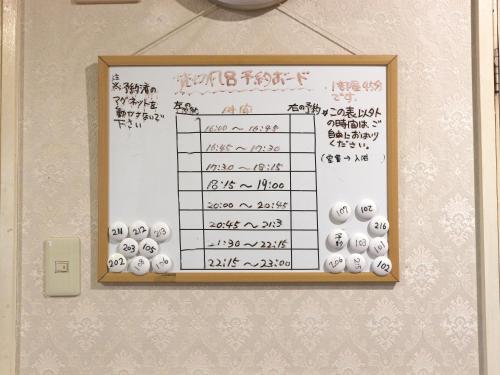 貸切風呂予約ボード
1部屋45分
です。
注
※予約済の
マグネットを
動かさないで
下さい
左の予約
時間
右の予約
16:00～16:45
16:45～17:30
17:30～18:15
18:15～19:00
20:00～20:45
20:45～21:3
21:30～22:15
22:15～23:00
※この表以外
の時間は、ご
自由にお入り
ください。
211
212
213
203
105
202
106
107
102
216
予約
103
101
206
215
102